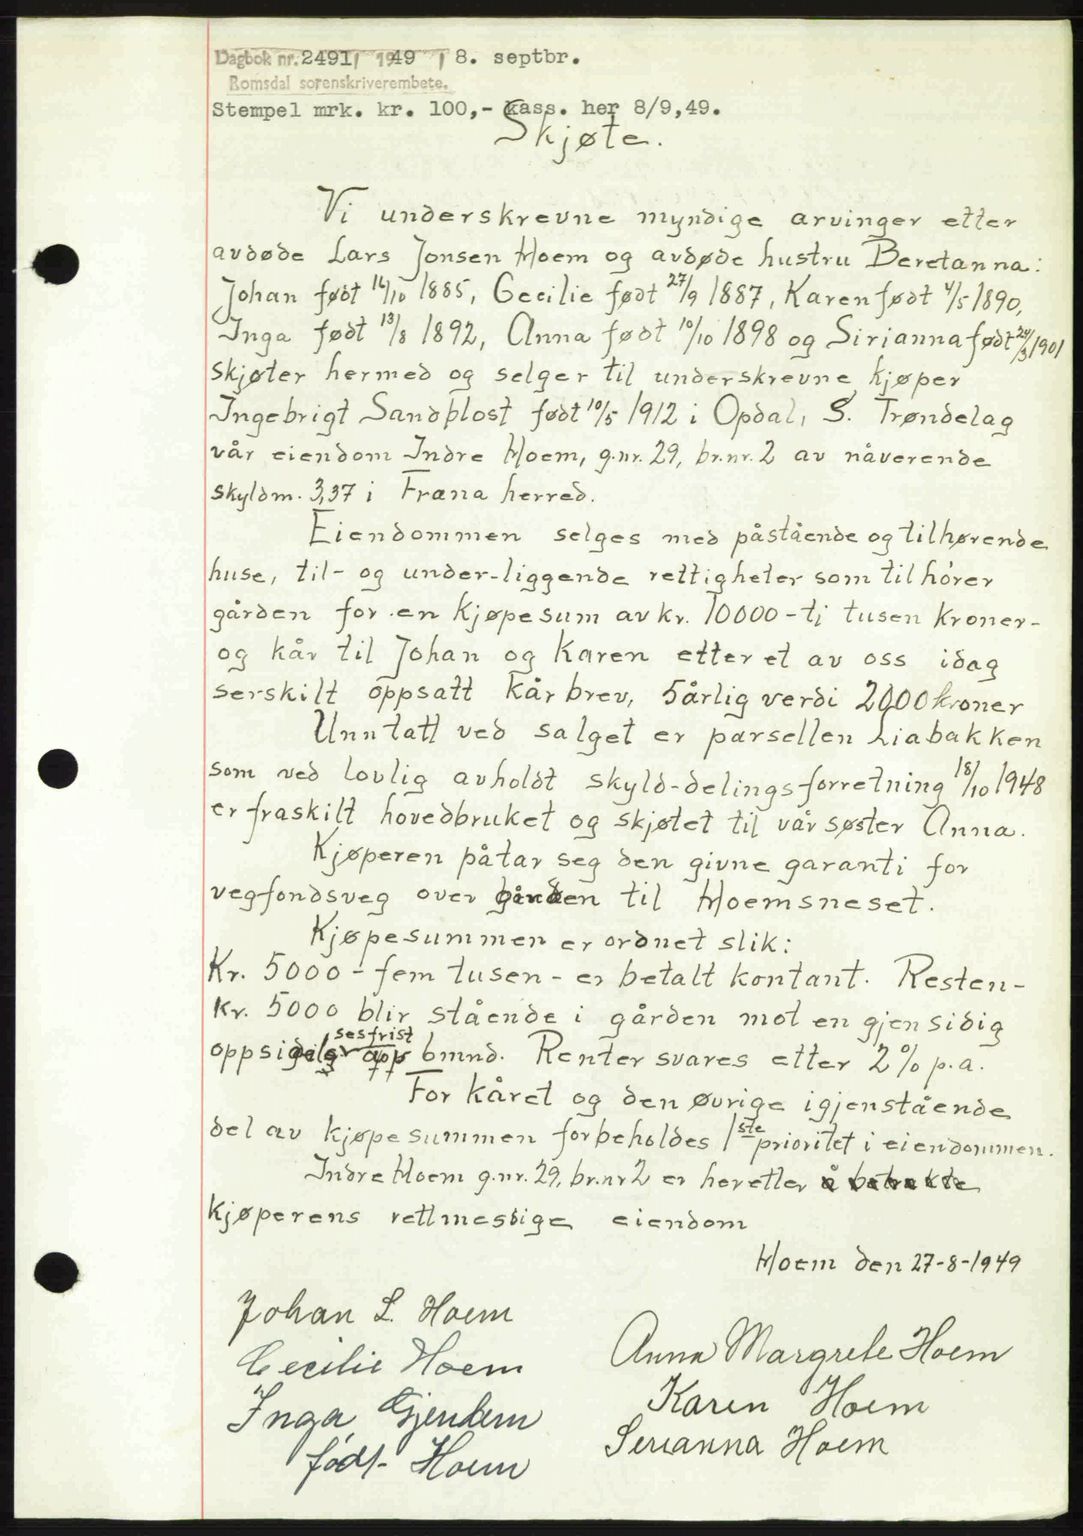 Dagbok nr. 2491/ 1949 / 8. septbr.
Romsdal sorenskriverembete.
Stempel mrk. kr. 100,- kass. her 8/9,49.
Skjøte.
Vi underskrevne myndige arvinger etter
avdøde Lars Jonsen Hoem og avdøde hustru Beretanna:
Johan født 16/10 1885, Cecilie født 27/9 1887, Karen født 4/5 1890,
Inga født 13/8 1892, Anna født 10/10 1898 og Sirianna født 28/3 1901
skjøter hermed og selger til underskrevne kjøper
Ingebrigt Sandblost født 10/5 1912 i Opdal, S. Trøndelag
vår eiendom Indre Hoem, g.nr. 29, br.nr. 2 av nåverende
skyldm. 3,37 i Fræna herred.
Eiendommen selges med påstående og tilhørende
huse, til- og under-liggende rettigheter som tilhører
gården for en kjøpesum av kr. 10000 - ti tusen kroner-
og kår til Johan og Karen etter et av oss idag
serskilt oppsatt kårbrev, 5årlig verdi 2000 kroner
Unntatt ved salget er parsellen Liabakken
som ved lovlig avholdt skyld-delingsforretning 18/10 1948
er fraskilt hovedbruket og skjøtet til vår søster Anna.
Kjøperen påtar seg den givne garanti for
vegfondsveg over gården til Hoemsneset.
Kjøpesummen er ordnet slik:
Kr. 5000 - fem tusen - er betalt kontant. Resten-
Kr. 5000 blir stående i gården mot en gjensidig
sesfrist
oppsigels 6mnd. Renter svares etter 2% p.a.
For kåret og den øvrige igjenstående
del av kjøpesummen forbeholdes 1ste prioritet i eiendommen.
Indre Hoem g.nr. 29, br.nr 2 er heretter å betrakte
kjøperens rettmessige eiendom
Hoem den 27-8-1949
Johan L. Hoem
Cecilie Hoem
Anna Margrete Hoem
Inga Gjendem
Karen Hoem
født Hoem
Serianna Hoem